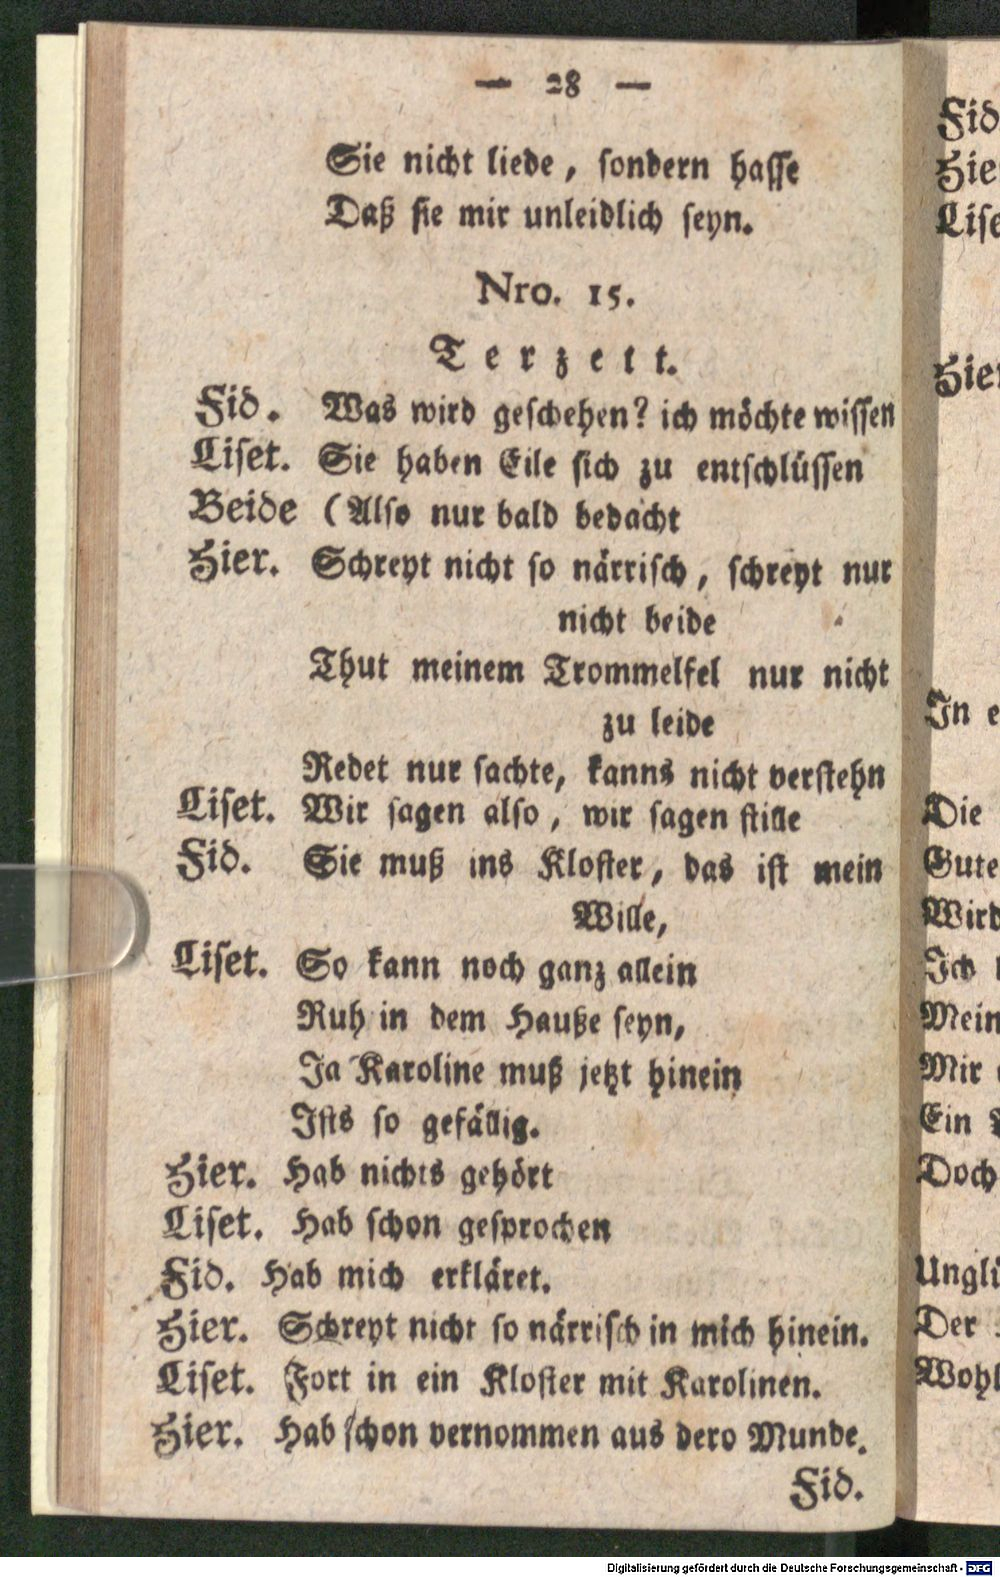 — 28 —
Sie nicht liebe, sondern hasse
Daß sie mir unleidlich seyn.
Nro. 15.
Terzett.
Fid. Was wird geschehen? ich möchte wissen
Liset. Sie haben Eile sich zu entschlüssen
Beide (Also nur bald bedacht
Hier. Schreyt nicht so närrisch, schreyt nur
nicht beide
Thut meinem Trommelfel nur nicht
zu leide
Redet nur sachte, kanns nicht verstehn
Liset. Wir sagen also, wir sagen stille
Fid. Sie muß ins Kloster, das ist mein
Wille,
Liset. So kann noch ganz allein
Ruh in dem Hauße seyn,
Ja Karoline muß jetzt hinein
Ists so gefällig.
Hier. Hab nichts gehört
Liset. Hab schon gesprochen
Fid. Hab mich erkläret.
Hier. Schreyt nicht so närrisch in mich hinein.
Liset. Fort in ein Kloster mit Karolinen.
Hier. Hab schon vernommen aus dero Munde.
Fid.
Fid
Hie
Lise
Hier
In e
Die
Gute
Wird
Ich
Mein
Mir
Ein
Doch
Unglü
Der
Wohl
Digitalisierung gefördert durch die Deutsche Forschungsgemeinschaft - DFG